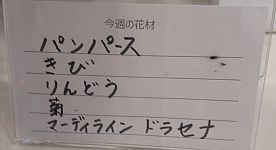 今週の花材
パンパース
きび
りんどう
菊
マーディライン ドラセナ